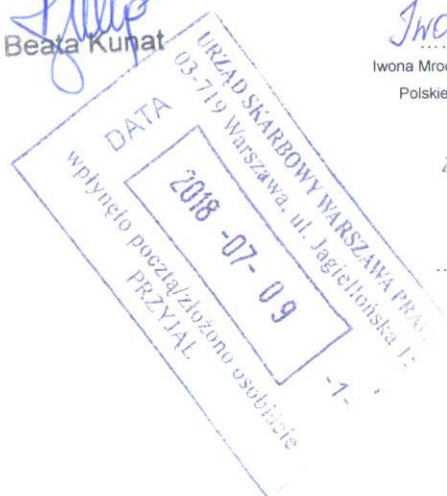 Beata Kunat
Iwona
Polskie
URZĄD SKARBOWY WARSZAWA
03-719 Warszawa, ul. Jagiellońska
DATA
2018 -07- 09
-1-
wpłynęło pocztą/złożono osobiście
PRZYJĄŁ